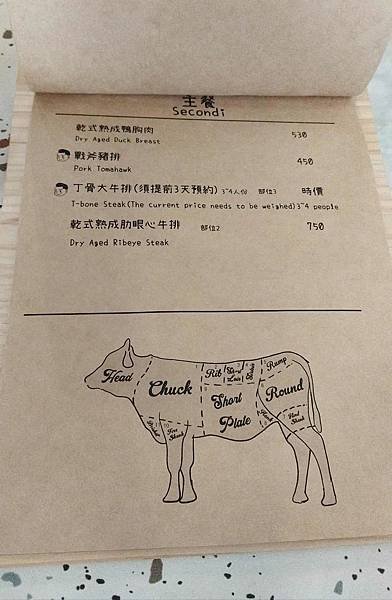 主餐
Secondi
乾式熟成鴨胸肉 530
Dry Aged Duck Breast
戰斧豬排 450
Pork Tomahawk
丁骨大牛排(須提前3天預約) 3~4人份 部位3 時價
T-bone Steak(The current price needs to be weighed)3~4 people
乾式熟成肋眼心牛排 部位2 750
Dry Aged Ribeye Steak
Head
Chuck
Rib
Short
Loin
Rump
Round
Short
Plate
Fore
Shank
Hind
Shank